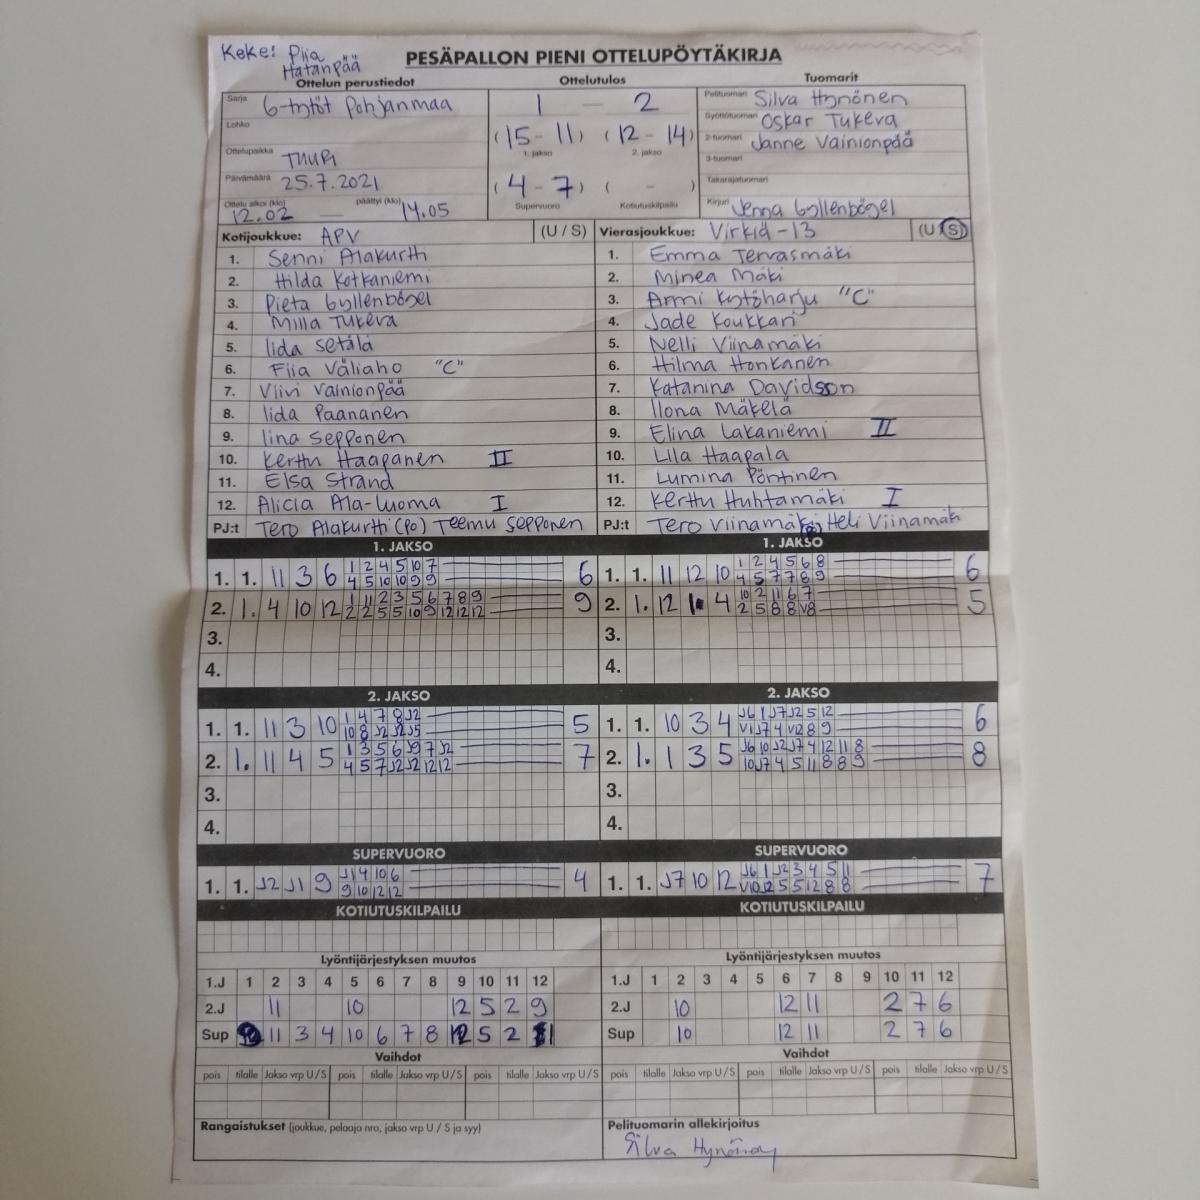 Keke: Piia
Hatanpää
PESÄPALLON PIENI OTTELUPÖYTÄKIRJA
Ottelun perustiedot Ottelutulos Tuomarit
Sarja 6-tytöt Pohjanmaa 1 — 2 Pelituomari Silva Hynönen
Lohko (15 - 11) (12 - 14) Syöttötuomari Oskar Tukeva
1. jakso 2. jakso 2-tuomari Janne Vainionpää
Ottelupaikka TUURI 3-tuomari
Päivämäärä 25.7.2021 (4 - 7) ( - ) Takarajatuomari
Ottelu alkoi (klo) 12.02 — päättyi (klo) 14.05 Supervuoro Kotiutuskilpailu Kirjuri Jenna Gyllenbögel
Kotijoukkue: APV (U / S) Vierasjoukkue: Virkiä-13 (U / S)
1. Senni Alakurtti 1. Emma Tervasmäki
2. Hilda Kotkaniemi 2. Minea Mäki
3. Pieta Gyllenbögel 3. Armi Kytöharju "C"
4. Milla Tukeva 4. Jade Koukkari
5. Iida Setälä 5. Nelli Viinamäki
6. Fiia Väliaho "C" 6. Hilma Honkanen
7. Viivi Vainionpää 7. Katariina Davidsson
8. Iida Paananen 8. Ilona Mäkelä
9. Iina Sepponen 9. Elina Lakaniemi II
10. Kerttu Haapanen II 10. Lila Haapala
11. Elsa Strand 11. Lumina Pöntinen
12. Alicia Ala-Luoma I 12. Kerttu Huhtamäki I
PJ:t Tero Alakurtti (PO) Teemu Sepponen PJ:t Tero Viinamäki Heli Viinamäki
1. JAKSO 1. JAKSO
1. 1. 11 3 6 1 2 4 5 10 7 6 1. 1. 11 12 10 1 2 4 5 6 8 6
4 5 10 10 9 9 4 5 7 7 8 9
2. 1. 4 10 12 1 11 2 3 5 6 7 8 9 9 2. 1. 12 1. 4 10 2 11 6 7 5
2 2 5 5 10 9 12 12 12 2 5 8 8 V8
3. 3.
4. 4.
2. JAKSO 2. JAKSO
1. 1. 11 3 10 1 4 7 8 J2 5 1. 1. 10 3 4 J6 1 J7 J2 5 12 6
10 8 J2 J2 J5 V1 J7 4 V12 8 9
2. 1. 11 4 5 1 3 5 6 J9 7 J2 7 2. 1. 1 3 5 J6 10 J2 J7 4 12 11 8 8
4 5 7 J2 J2 12 12 10 J7 4 5 11 8 8 9
3. 3.
4. 4.
SUPERVUORO SUPERVUORO
1. 1. J2 J1 9 J1 4 10 6 4 1. 1. J7 10 12 J6 1 J2 3 4 5 11 7
9 10 12 12 V10 J2 5 5 12 8 8
KOTIUTUSKILPAILU KOTIUTUSKILPAILU
Lyöntijärjestyksen muutos Lyöntijärjestyksen muutos
1.J 1 2 3 4 5 6 7 8 9 10 11 12 1.J 1 2 3 4 5 6 7 8 9 10 11 12
2.J 11 10 12 5 2 9 2.J 10 12 11 2 7 6
Sup 11 3 4 10 6 7 8 12 5 2 Sup 10 12 11 2 7 6
Vaihdot Vaihdot
pois tilalle Jakso vrp U / S pois tilalle Jakso vrp U / S pois tilalle Jakso vrp U / S pois tilalle Jakso vrp U / S pois tilalle Jakso vrp U / S pois tilalle Jakso vrp U / S
Rangaistukset (joukkue, pelaaja nro, jakso vrp U / S ja syy) Pelituomarin allekirjoitus
Silva Hynönen